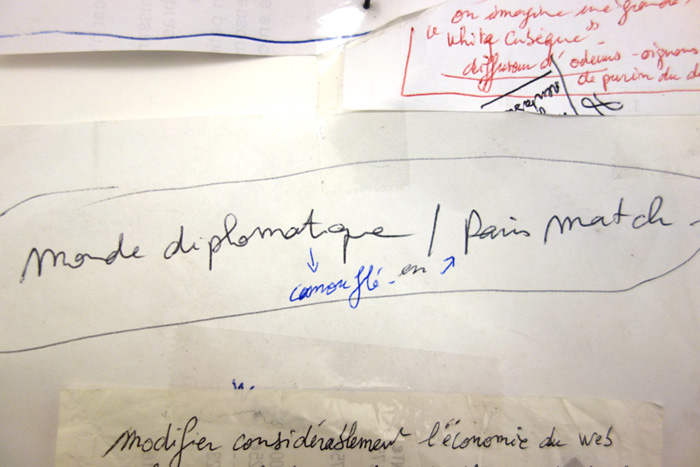 on imagine une grande
"White Cubeque"
diffuseur d'odeurs - oignons
de purin du
Monde diplomatique / Paris Match -
camouflé - en
modifier considérablement l'économie du web